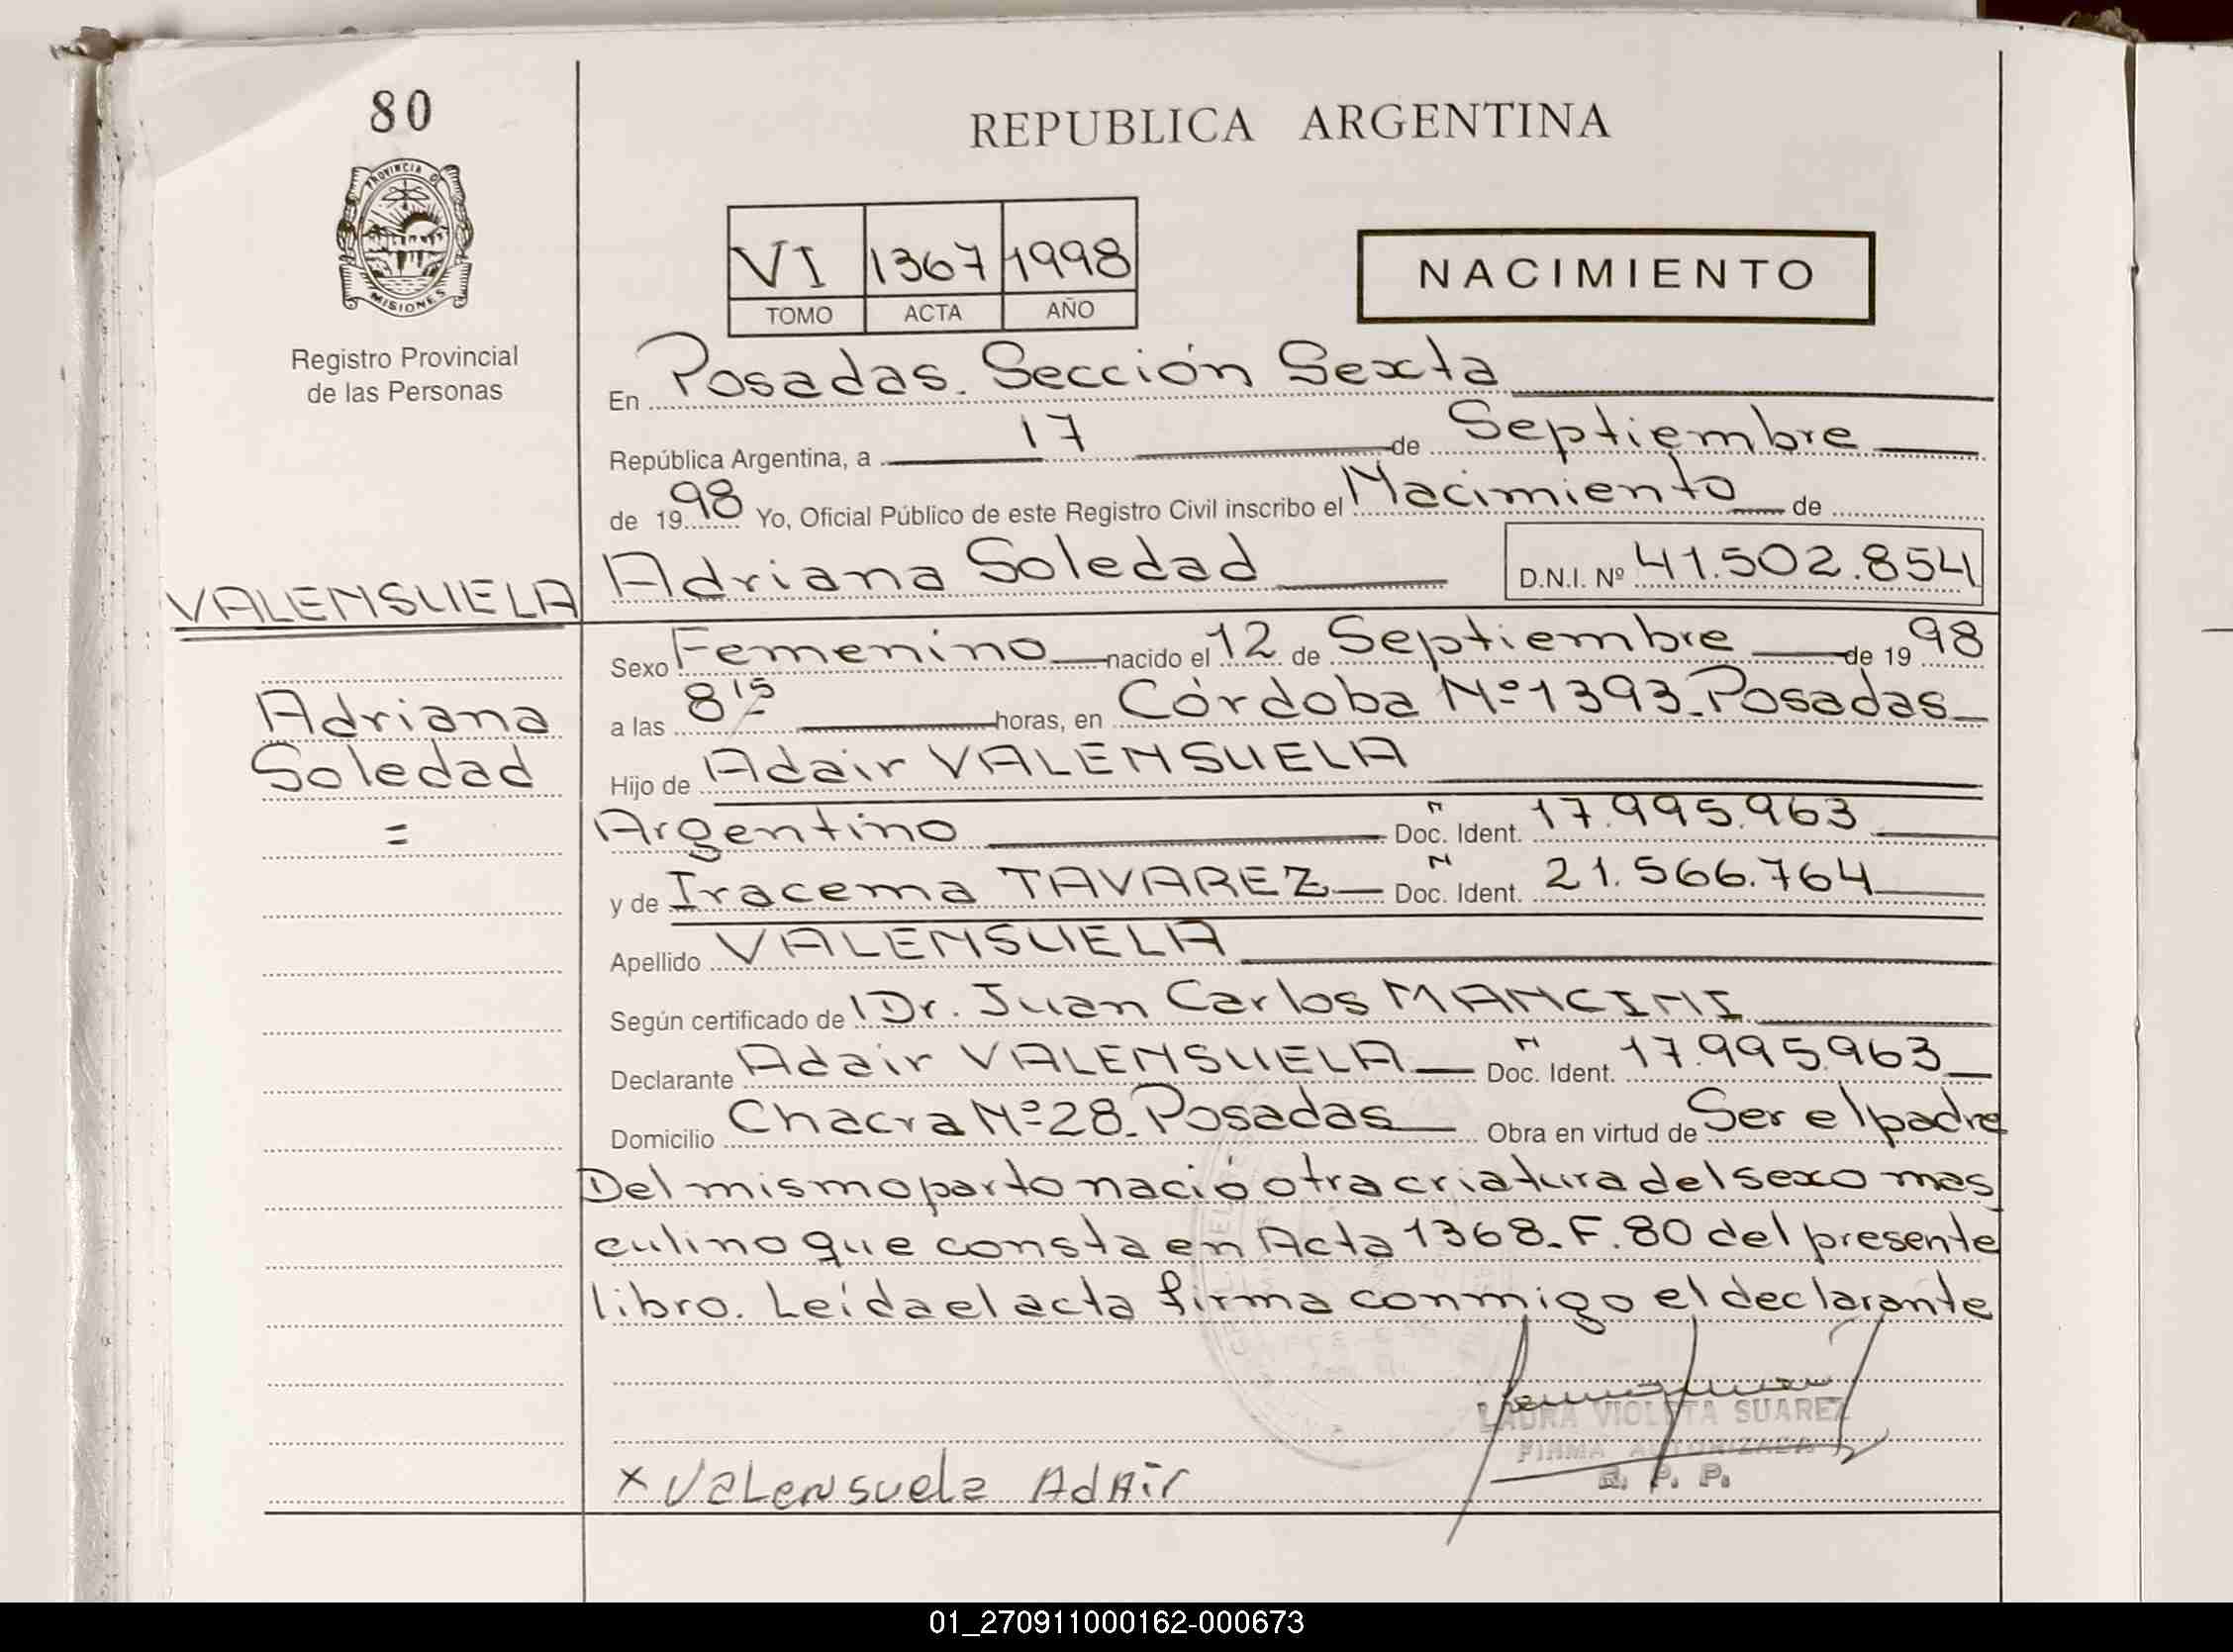 80
REPUBLICA ARGENTINA
PROVINCIA D
MISIONES
Registro Provincial
de las Personas
VI 1367 1998
TOMO ACTA AÑO
NACIMIENTO
En Posadas. Sección Sexta
República Argentina, a 17 de Septiembre
de 1998 Yo, Oficial Público de este Registro Civil inscribo el Nacimiento de
Adriana Soledad D.N.I. Nº 41.502.854
VALENSUELA
Adriana
Soledad
=
Sexo Femenino nacido el 12 de Septiembre de 1998
a las 8 15 horas, en Córdoba Nº 1393. Posadas
Hijo de Adair VALENSUELA
Argentino Doc. Ident. N 17.995.963
y de Iracema TAVAREZ Doc. Ident. N 21.566.764
Apellido VALENSUELA
Según certificado de Dr. Juan Carlos MANCINI
Declarante Adair VALENSUELA Doc. Ident. N 17.995.963
Domicilio Chacra Nº 28. Posadas Obra en virtud de Ser el padre
Del mismo parto nació otra criatura del sexo mas
culino que consta en Acta 1368. F. 80 del presente
libro. Leída el acta firma conmigo el declarante
LAURA VIOLETA SUAREZ
FIRMA AUTORIZADA
R. P. P.
x Valensuela Adair
01_270911000162-000673